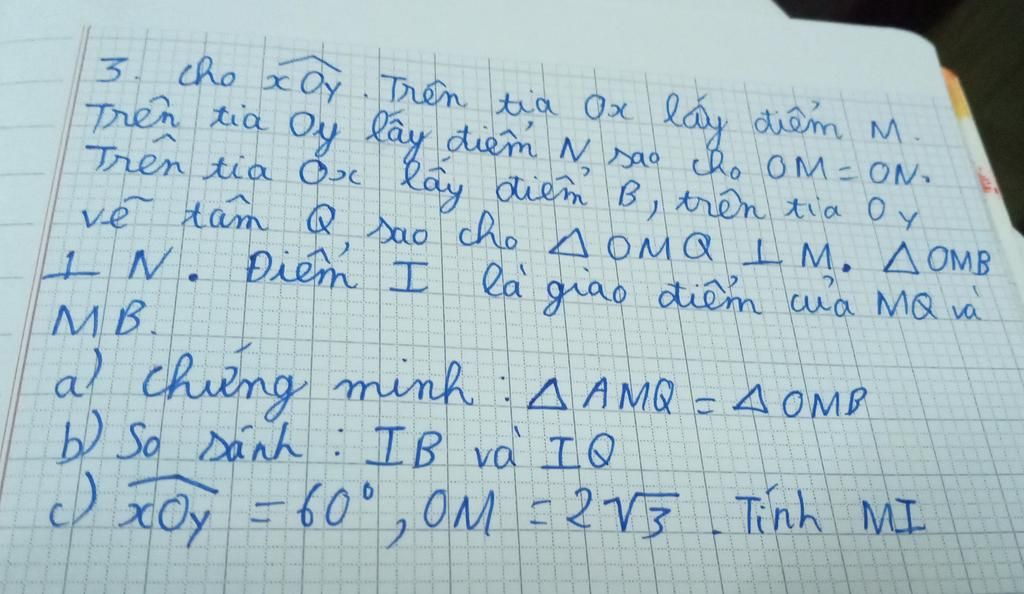 3. Cho xOy. Trên tia Ox lấy điểm M.
Trên tia Oy lấy điểm N sao cho OM = ON.
Trên tia Ox lấy điểm B, trên tia Oy
vẽ tâm Q, sao cho △OMQ ⊥ M. △OMB
⊥ N. Điểm I là giao điểm của MQ và
MB.
a) Chứng minh : △AMQ = △OMB
b) So sánh : IB và IQ
c) xOy = 60°, OM = 2√3. Tính MI